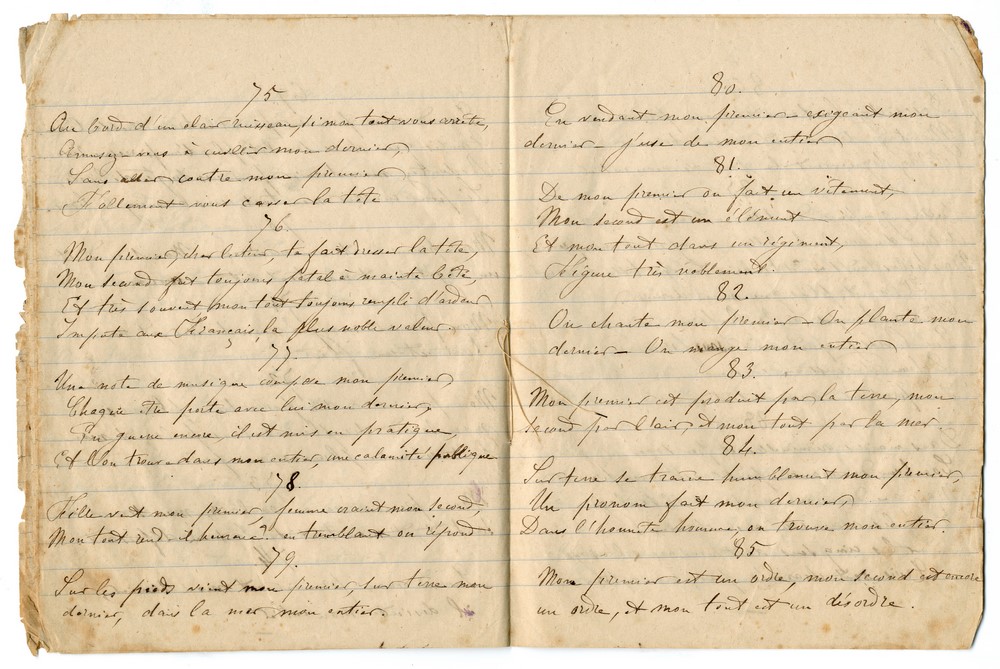 75
Au bord d'un clair ruisseau, si mon tout vous arrête,
Amusez-vous à cueillir mon dernier,
Sans aller contre mon premier
Follement vous casser la tête
76.
Mon premier, cher lecteur, te fait dresser la tête,
Mon second fut toujours fatal à mainte bête,
Et très souvent mon tout toujours rempli d'ardeur
Imposa aux Français, la plus noble valeur.
77.
Une note de musique compose mon premier,
Chaque être porte avec lui mon dernier,
En guerre encore, il est mis en pratique,
Et l'on trouve dans mon entier, une calamité publique
78
Fille veut mon premier, femme craint mon second,
Mon tout rend-il heureux? en tremblant on répond
79.
Sur les pieds vient mon premier, sur terre mon
dernier, dans la mer mon entier.
80.
En vendant mon premier - exigeant mon
dernier - j'use de mon entier
81.
De mon premier on fait un vêtement,
Mon second est un élément
Et mon tout dans un régiment,
Figure très noblement.
82.
On chante mon premier - On plante mon
dernier - On mange mon entier
83.
Mon premier est produit par la terre, mon
second par l'air, et mon tout par la mer.
84.
Sur terre se traîne humblement mon premier,
Un pronom fait mon dernier,
Dans l'honnête homme, on trouve mon entier.
85
Mon premier est un ordre, mon second est encore
un ordre, et mon tout est un désordre.